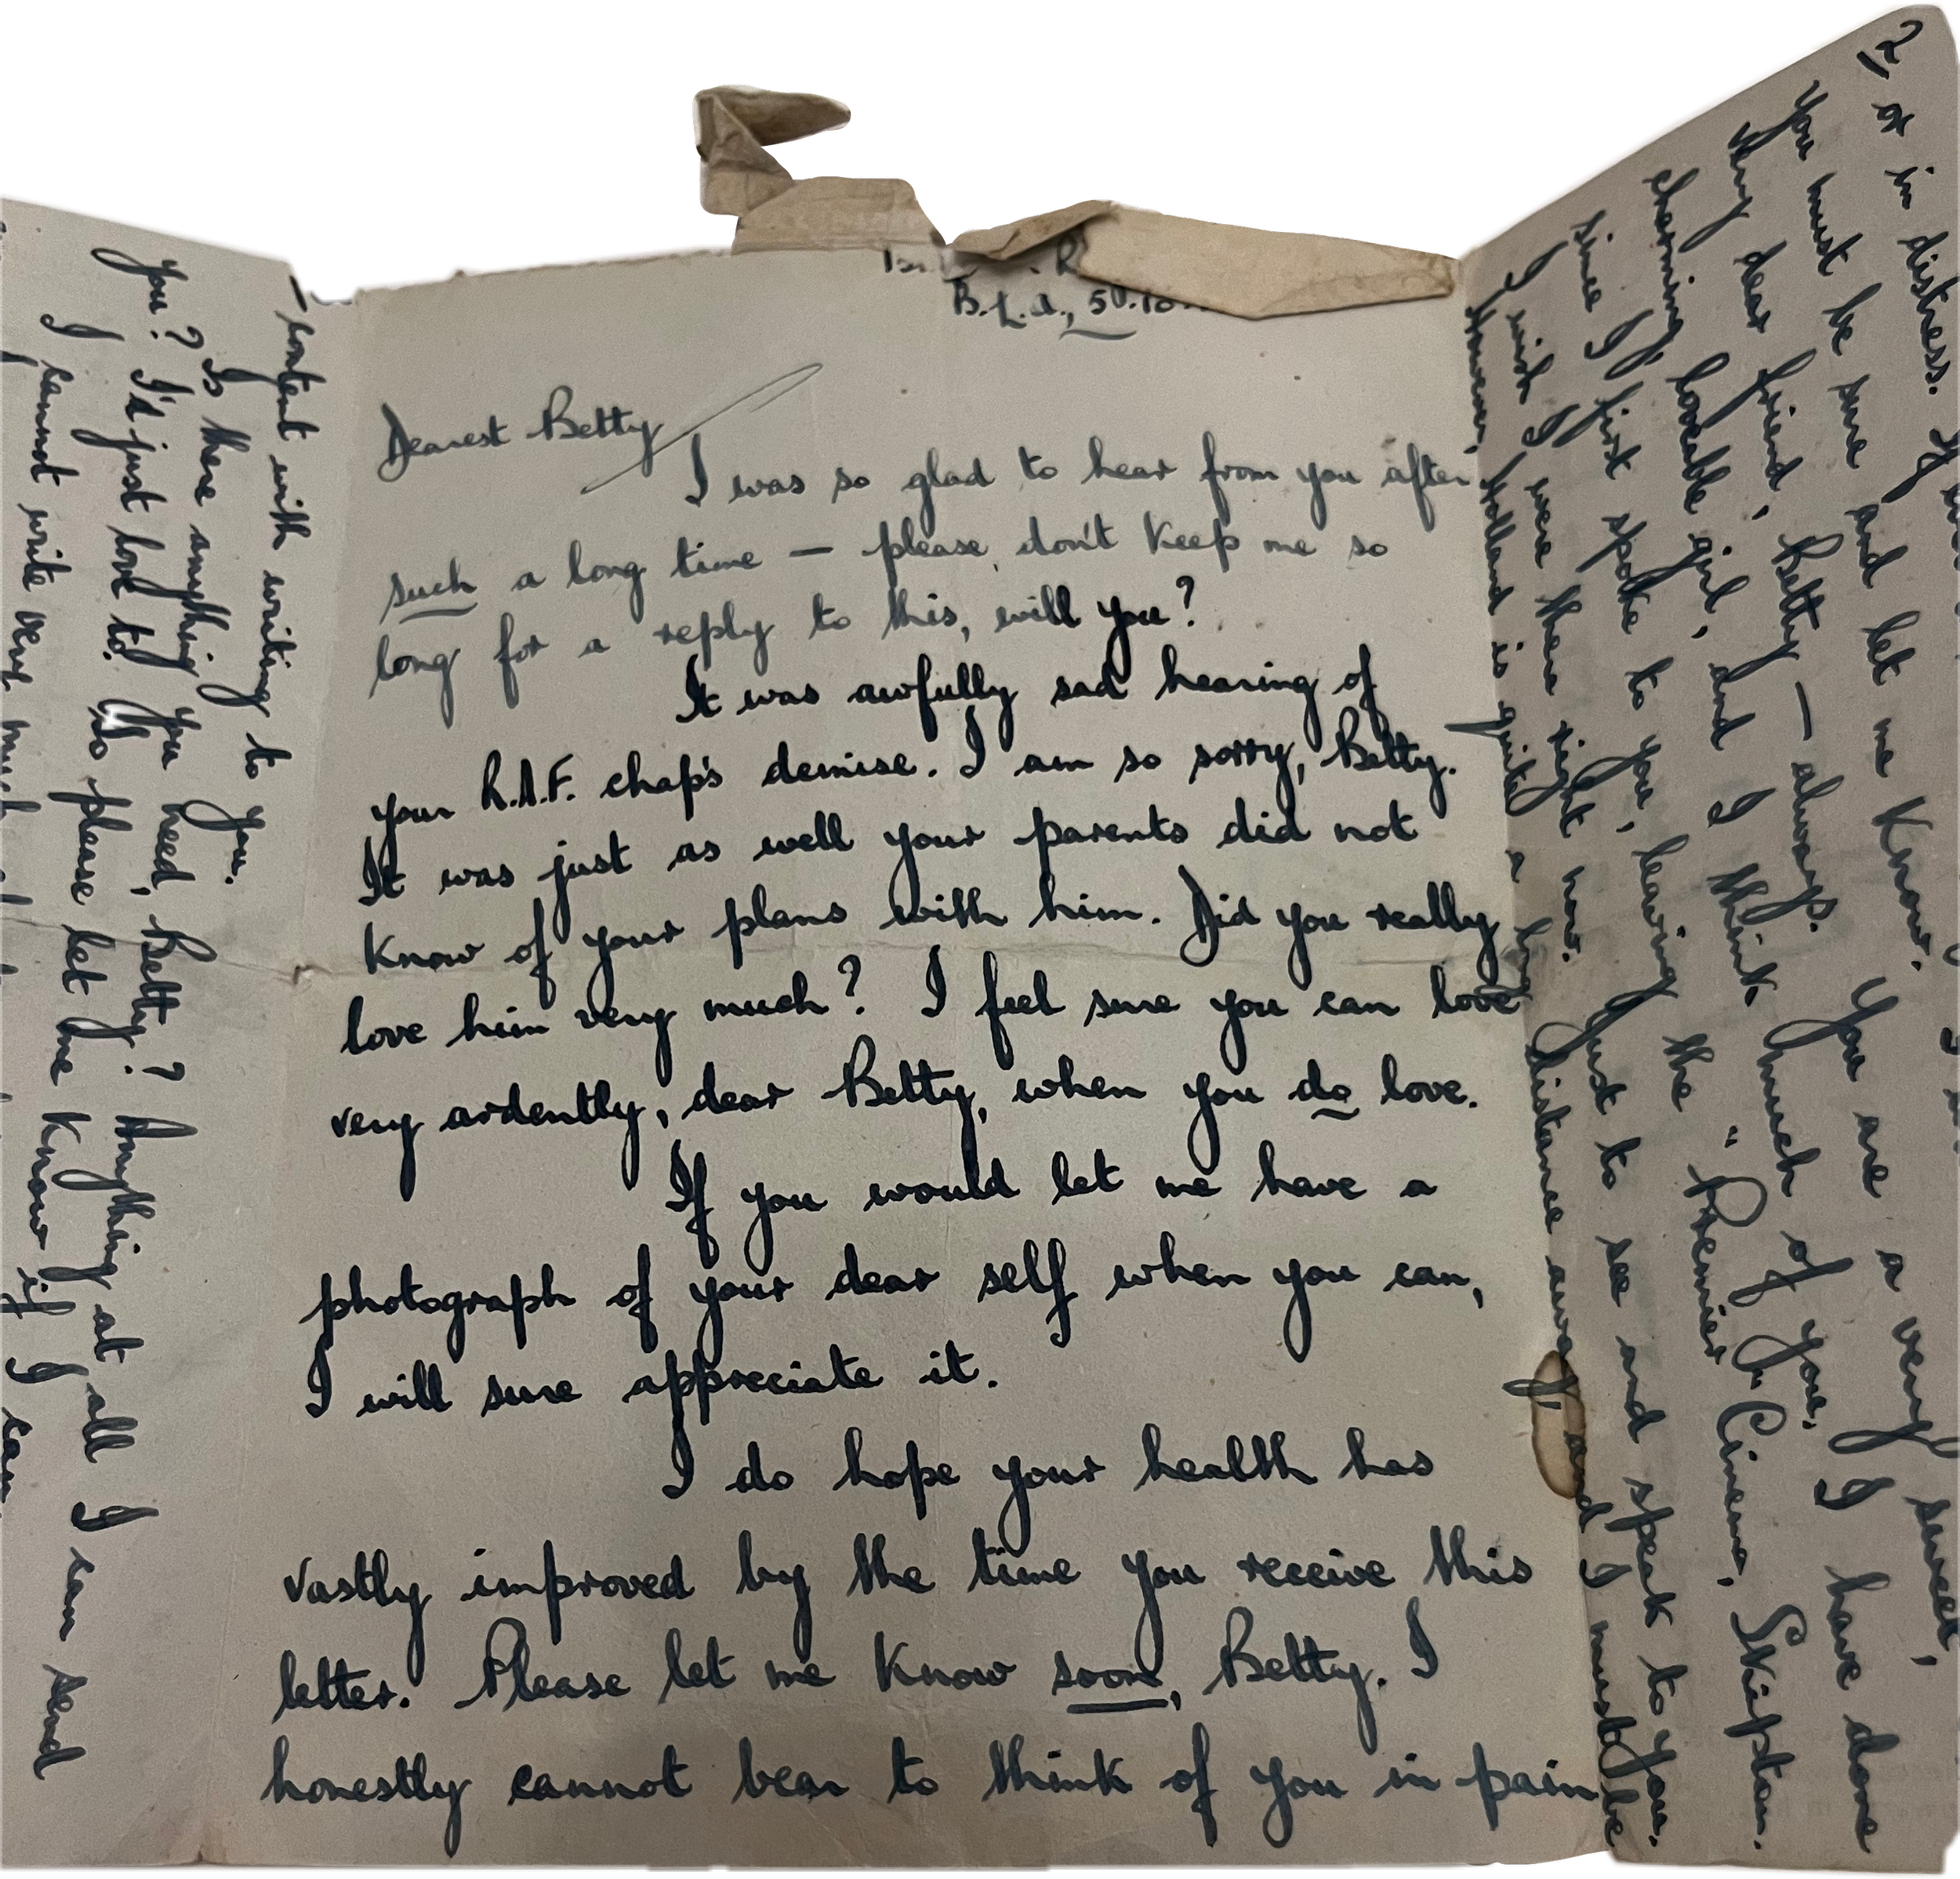 B.L.A.,
Dearest Betty
I was so glad to hear from you after
such a long time — please don't keep me so
long for a reply to this, will you?
It was awfully sad hearing of
your R.A.F. chap's demise. I am so sorry, Betty.
It was just as well your parents did not
know of your plans with him. Did you really
love him very much? I feel sure you can love
very ardently, dear Betty, when you do love.
If you would let me have a
photograph of your dear self when you can,
I will sure appreciate it.
I do hope your health has
vastly improved by the time you receive this
letter. Please let me know soon, Betty. I
honestly cannot bear to think of you in pain
2
or in distress.
You must be sure and let me know. You are a very sweet,
very dear friend, Betty — always.
charming, loveable girl, and I think much of you, I have done
since I first spoke to you, leaving the "Premier" Cinema, Skipton.
I wish I were there right now. Just to see and speak to you.
However, Holland is quite a long distance away, and I must be
— content with writing to you.
Is there anything you need, Betty? Anything at all I can send
you? I'd just love to. Do please let me know if I can
I cannot write very much